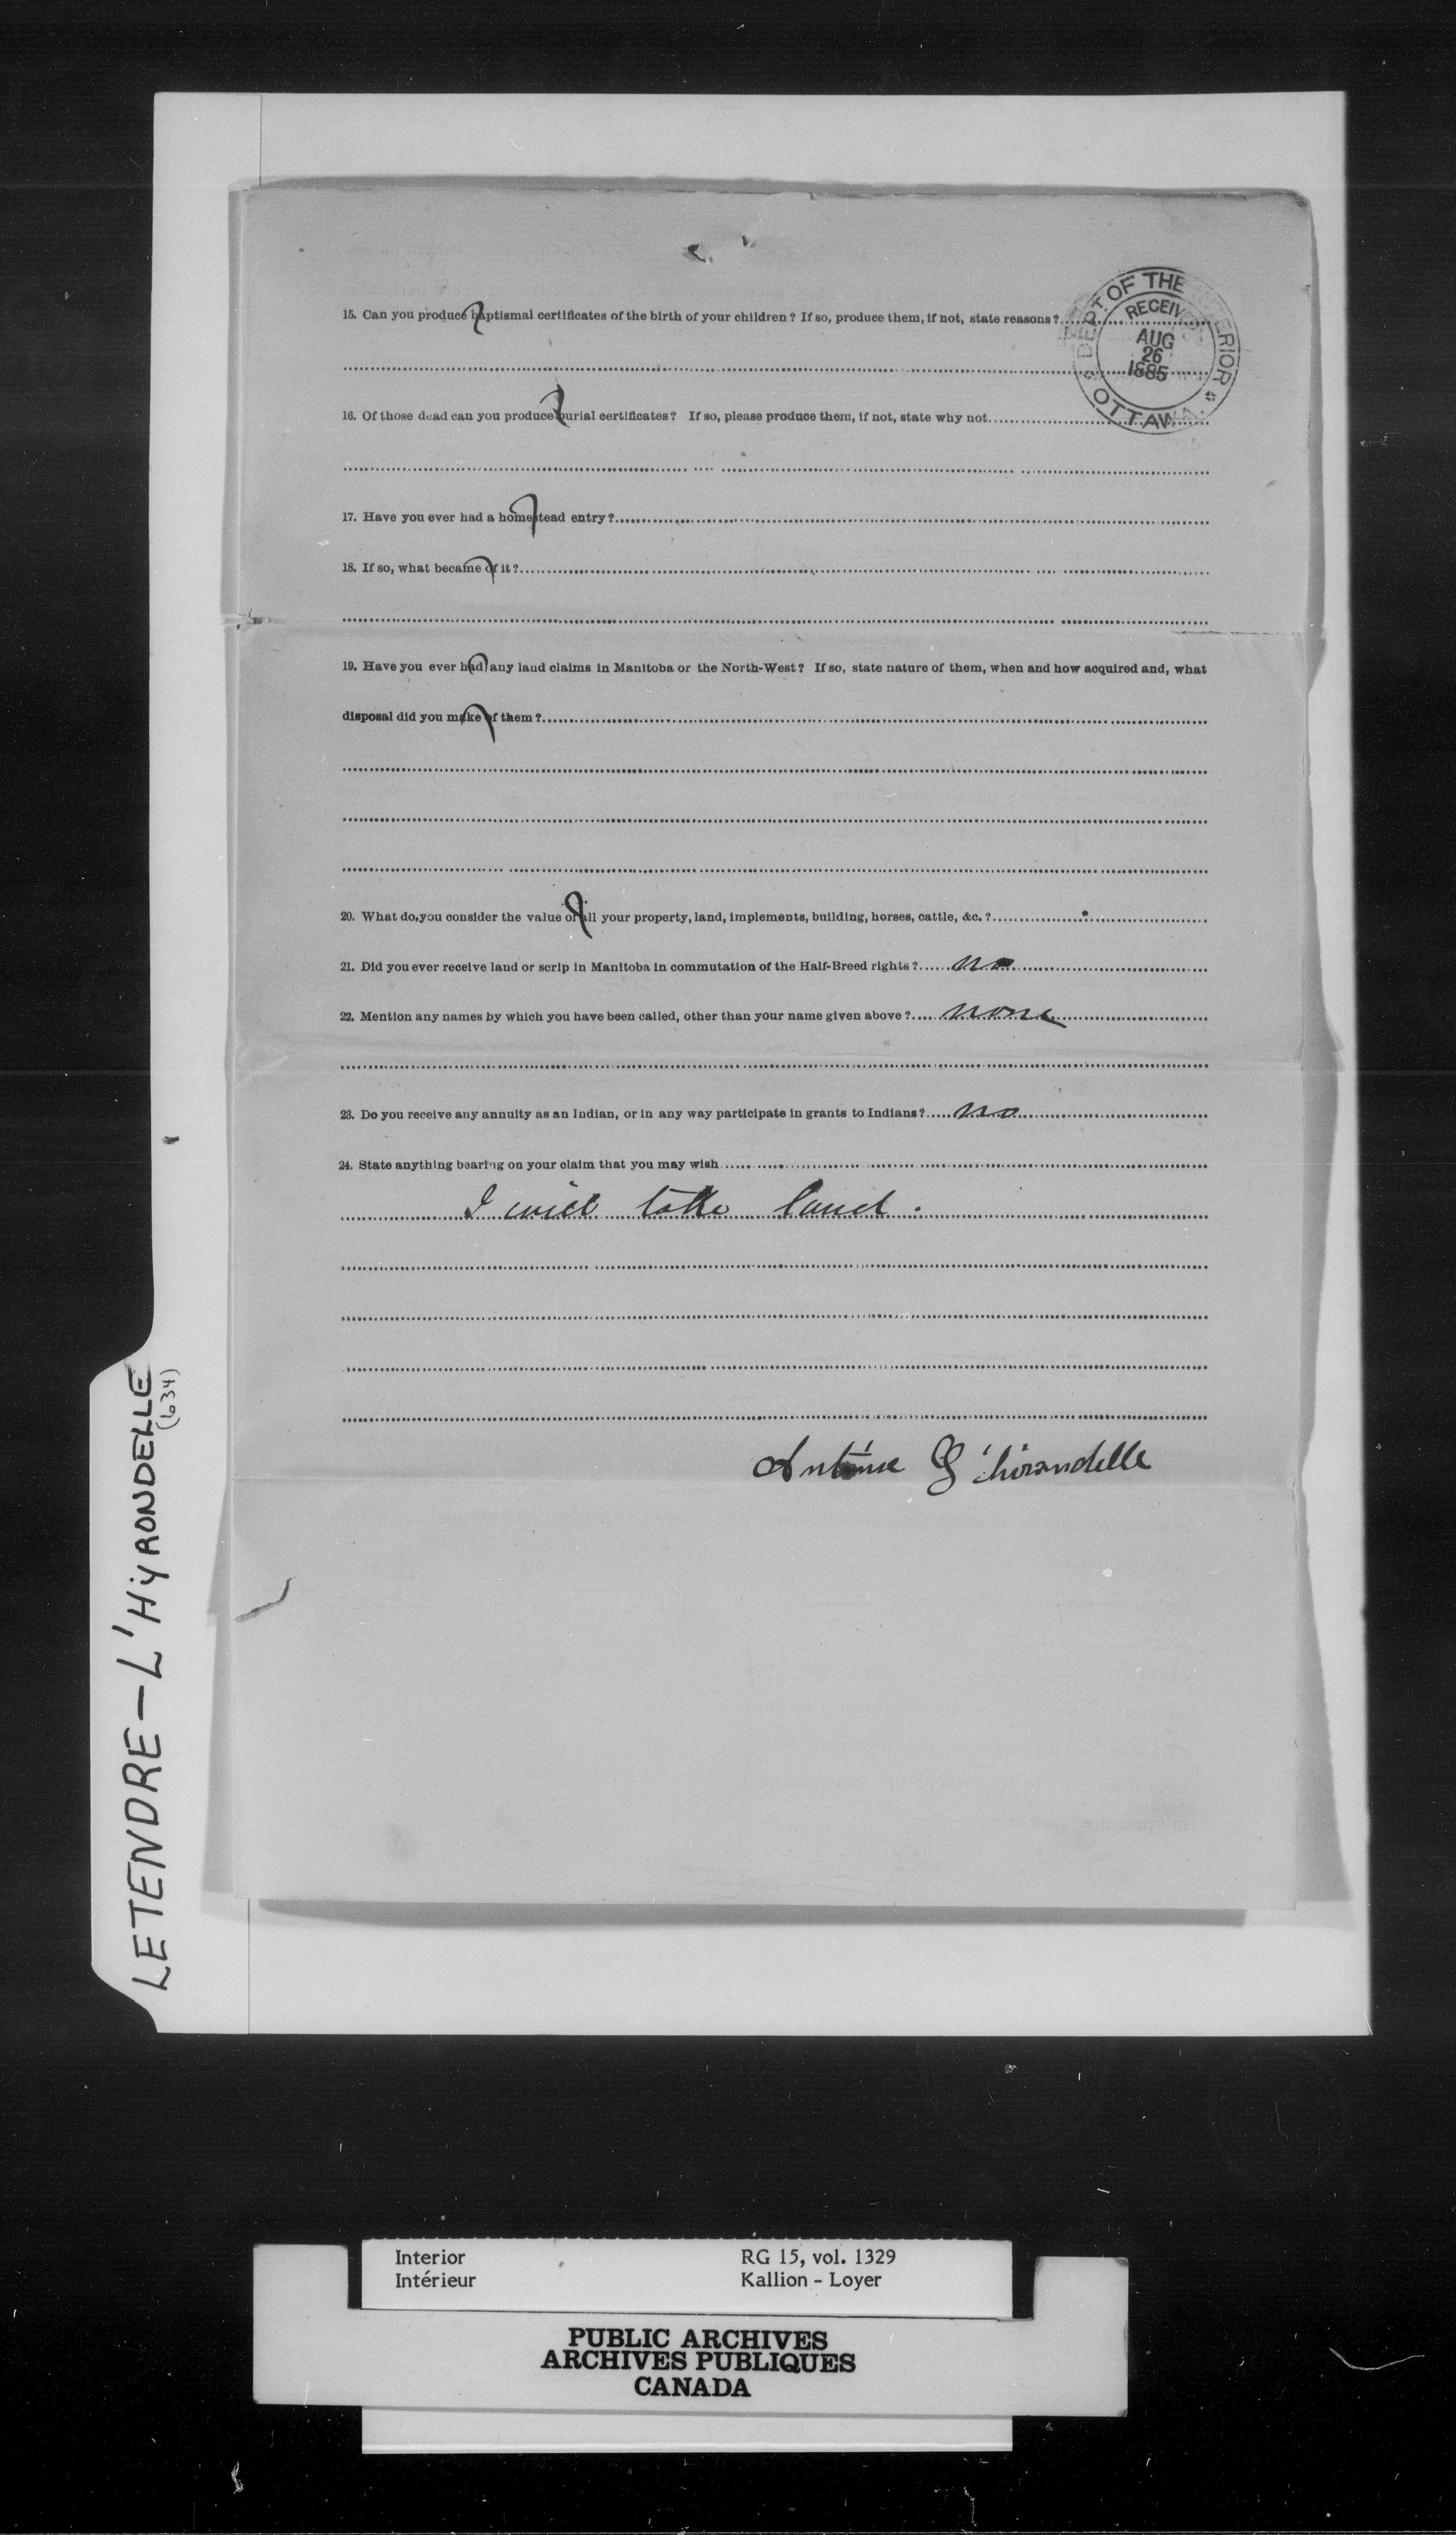 DEP'T OF THE INTERIOR
RECEIVED
AUG
26
1885
OTTAWA
15. Can you produce baptismal certificates of the birth of your children? If so, produce them, if not, state reasons?
16. Of those dead can you produce burial certificates? If so, please produce them, if not, state why not
17. Have you ever had a homestead entry?
18. If so, what became of it?
19. Have you ever had any land claims in Manitoba or the North-West? If so, state nature of them, when and how acquired and, what
disposal did you make of them?
20. What do you consider the value of all your property, land, implements, building, horses, cattle, &c.?
21. Did you ever receive land or scrip in Manitoba in commutation of the Half-Breed rights? no
22. Mention any names by which you have been called, other than your name given above? none
23. Do you receive any annuity as an Indian, or in any way participate in grants to Indians? no
24. State anything bearing on your claim that you may wish
I will take land.
Antoine L'hirondelle
LETENDRE-L'HYRONDELLE
(634)
Interior RG 15, vol. 1329
Intérieur Kallion - Loyer
PUBLIC ARCHIVES
ARCHIVES PUBLIQUES
CANADA